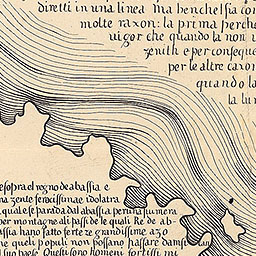 diretti in una linea ma benche sia con
molte raxon: la prima perche
uigor che quando la non u
zenith e per conseque
per le altre caxon
quando la
la lun
e sopra el regno de abassia e
na zente ferocissima e idolatra
quale se parada dal abassia per una fiumera
per montagne ali passi de le quali Re de ab-
assia hano fatto forteze grandissime azo
che queli populi non possano passare
suo paese Questi sono homeni fortissimi